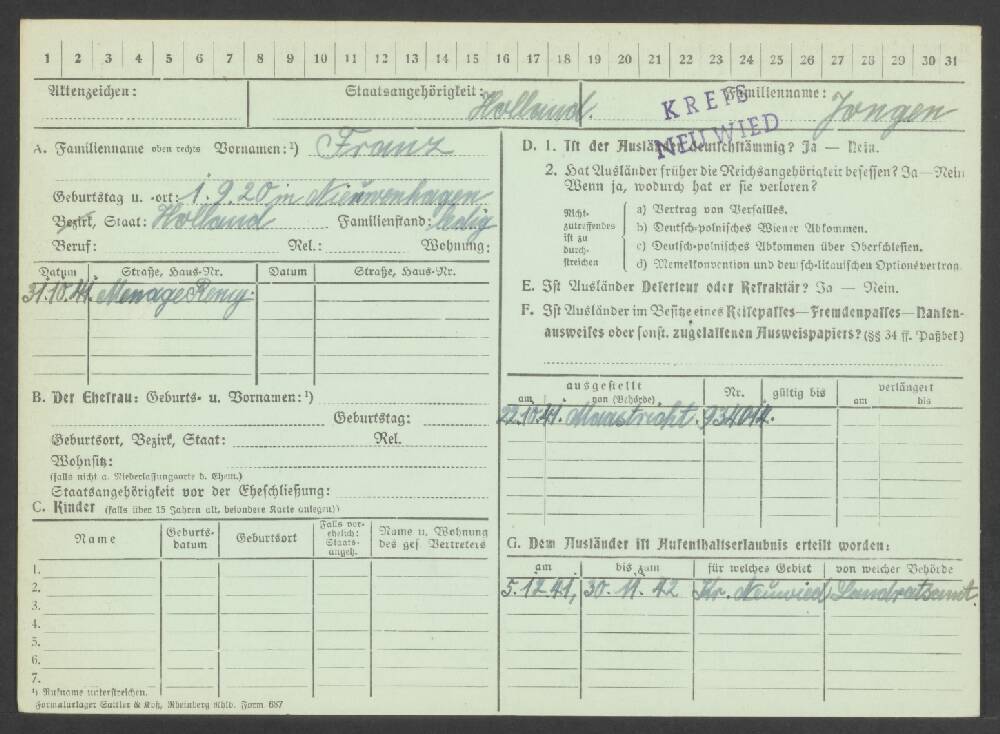 1 2 3 4 5 6 7 8 9 10 11 12 13 14 15 16 17 18 19 20 21 22 23 24 25 26 27 28 29 30 31
Aktenzeichen: Staatsangehörigkeit: Holland. Familienname: Jongen
KREIS NEUWIED
A. Familienname oben rechts Vornamen:¹) Franz
Geburtstag u. -ort: 1.9.20 in Nieuwenhagen
Bezirk, Staat: Holland Familienstand: ledig
Beruf: Rel.: Wohnung:
Datum Straße, Haus-Nr. Datum Straße, Haus-Nr.
31.10.41. Menage Remy.
B. Der Ehefrau: Geburts- u. Vornamen:¹)
Geburtstag:
Geburtsort, Bezirk, Staat: Rel.
Wohnsitz:
(falls nicht a. Niederlassungsorte d. Ehem.)
Staatsangehörigkeit vor der Eheschließung:
C. Kinder (falls über 15 Jahren alt, besondere Karte anlegen))
Name Geburts-datum Geburtsort Falls vor-ehelich: Staats-angeh. Name u. Wohnung des ges. Vertreters
1.
2.
3.
4.
5.
6.
7.
¹) Rufname unterstreichen.
Formularlager Sattler & Koß, Rheinberg Rhld. Form. 687
D. 1. Ist der Ausländer deutschstämmig? Ja — Nein.
2. Hat Ausländer früher die Reichsangehörigkeit besessen? Ja — Nein
Wenn ja, wodurch hat er sie verloren?
Nicht-zutreffendes ist zu durch-streichen
a) Vertrag von Versailles.
b) Deutsch-polnisches Wiener Abkommen.
c) Deutsch-polnisches Abkommen über Oberschlesien.
d) Memelkonvention und deutsch-litauischen Optionsvertrag.
E. Ist Ausländer Deserteur oder Refraktär? Ja — Nein.
F. Ist Ausländer im Besitze eines Reisepasses—Fremdenpasses—Nansen-
ausweises oder sonst. zugelassenen Ausweispapiers? (§§ 34 ff. Paßbek.)
ausgestellt Nr. gültig bis verlängert
am von (Behörde) am bis
22.10.41. Maastricht. 934014.
G. Dem Ausländer ist Aufenthaltserlaubnis erteilt worden:
am bis zum für welches Gebiet von welcher Behörde
5.12.41, 30.11.42 Kr. Neuwied Landratsamt.